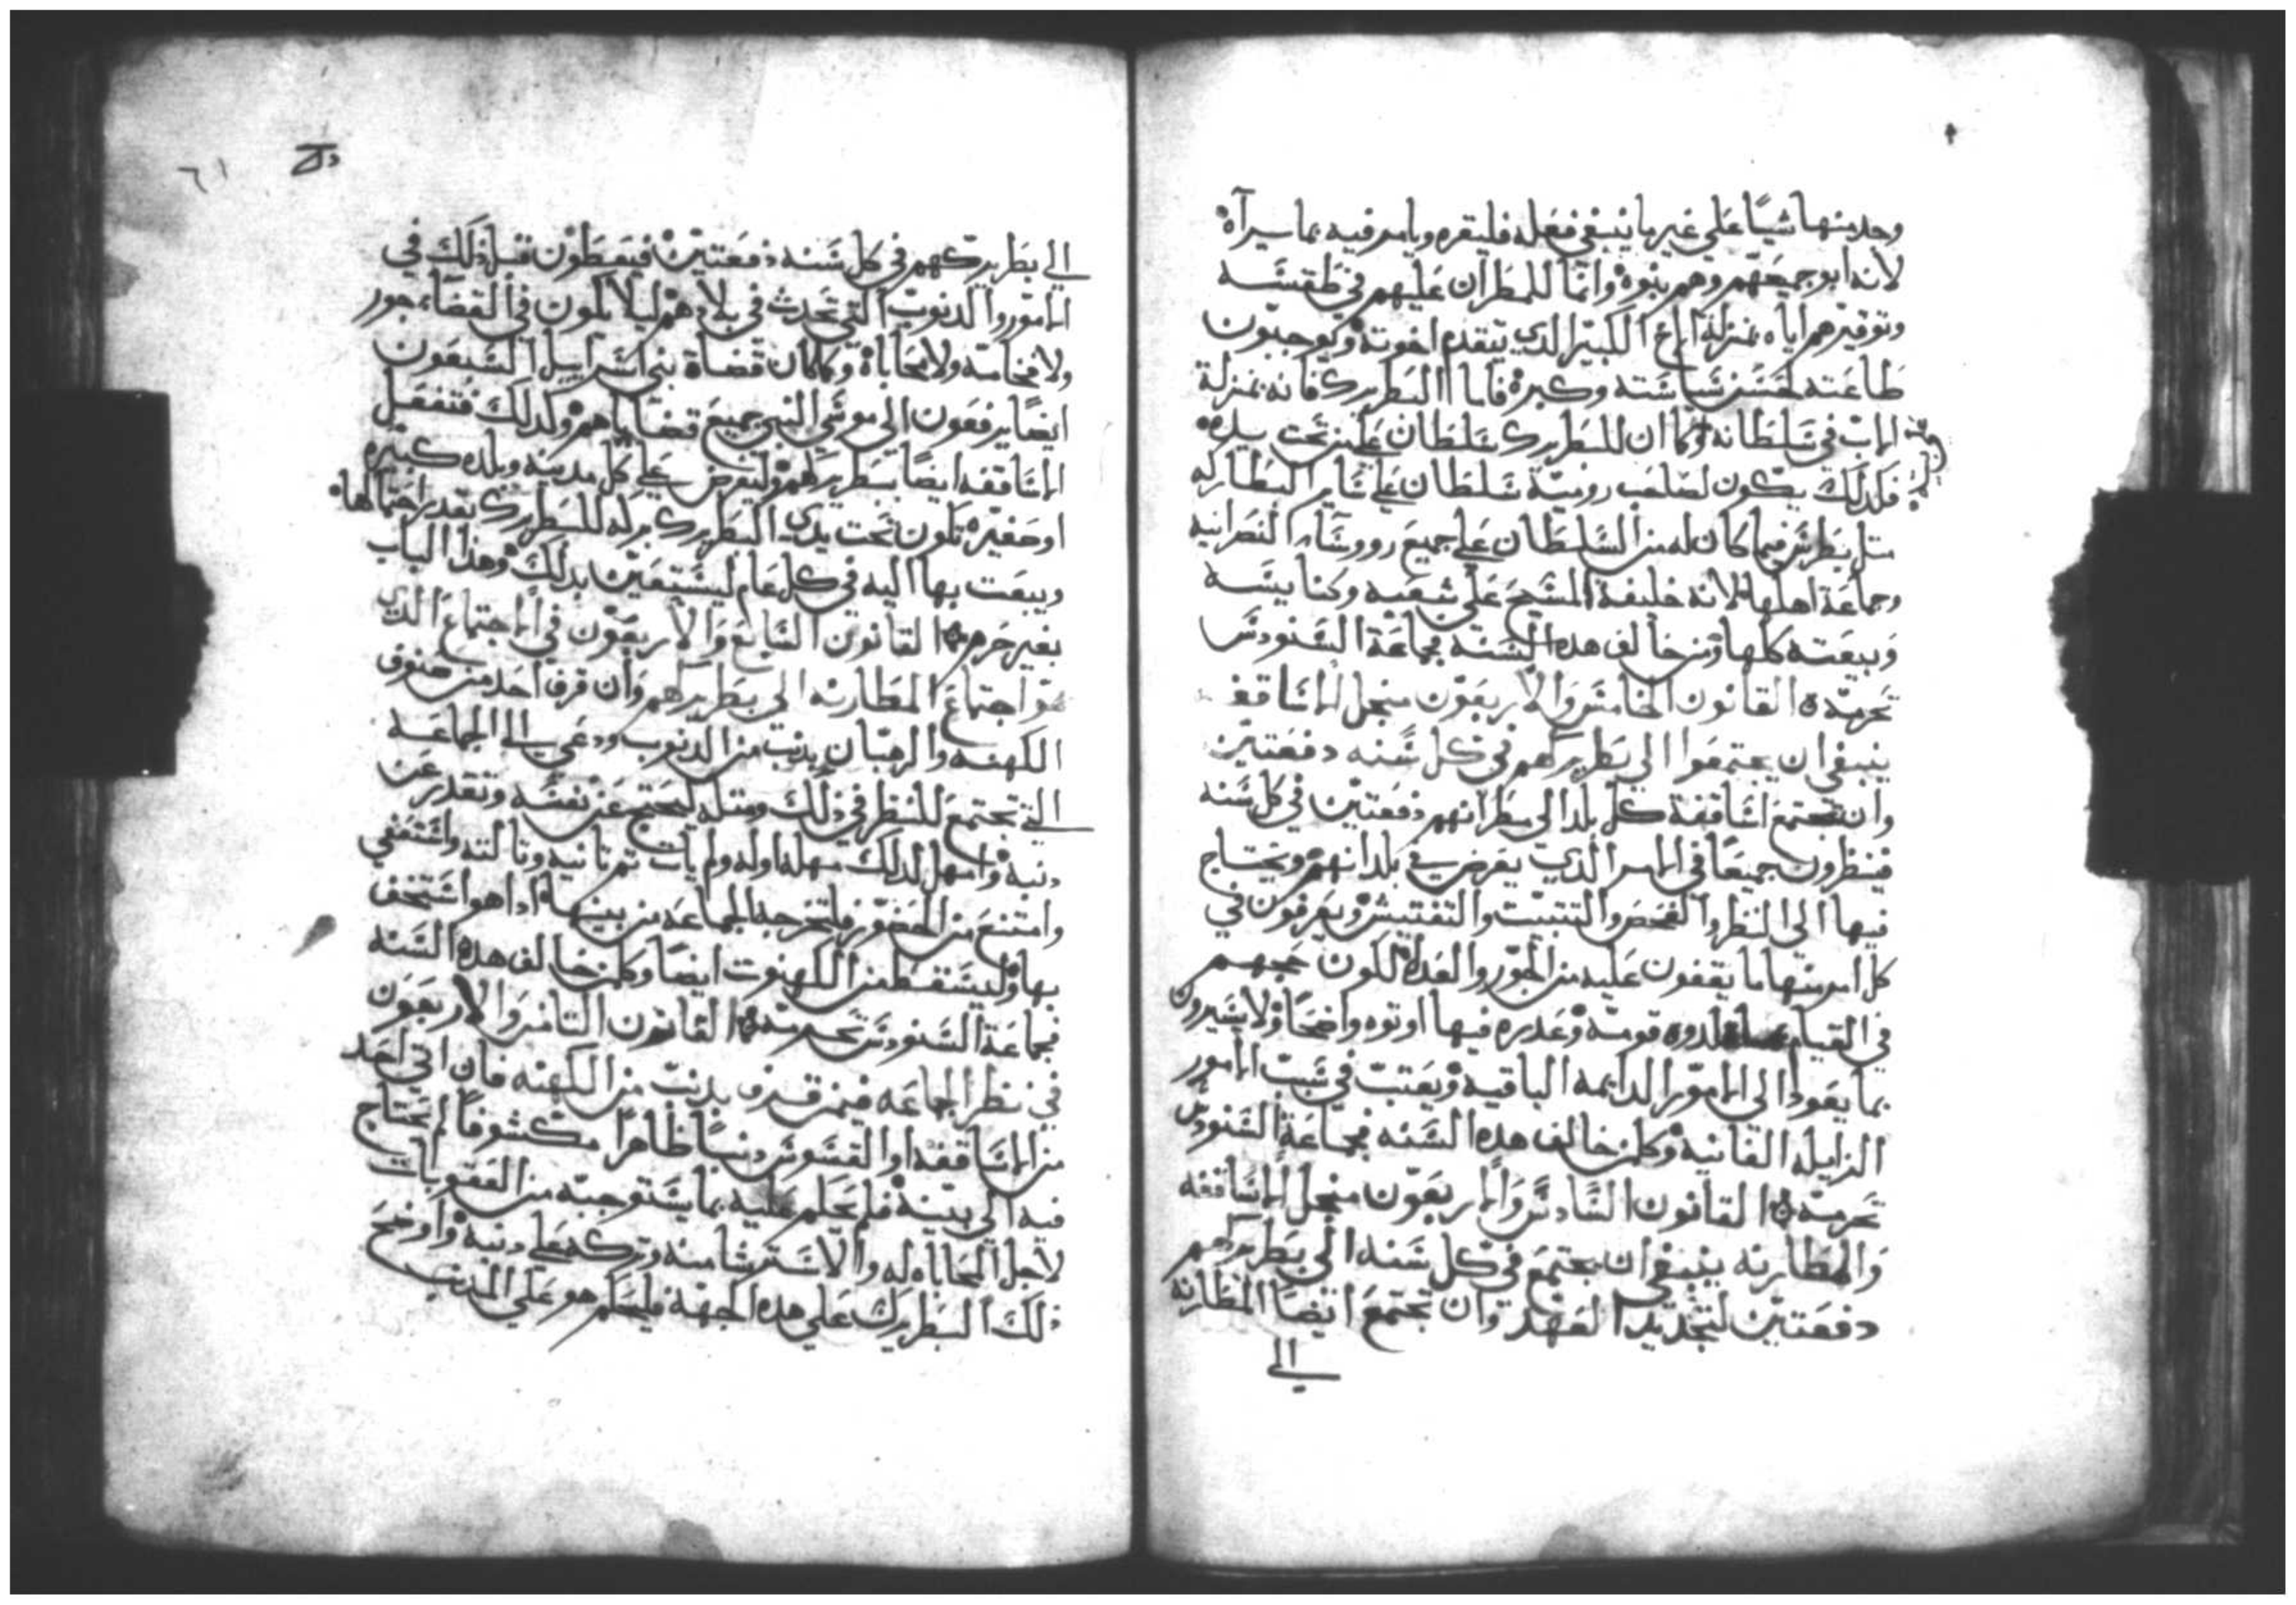 وجد منها شيًا علي غير ما ينبغي فعله فليغيره ويامر فيه بما يراه
لانه ابو جميعهم وهم بنوه وانما للمطران عليهم في طقسه
وتوقيرهم اياه بمنزلة الاخ الكبير الدي يتقدم اخوته ويوجبون
طاعته لحسن سياسته وكبره فاما البطريرك فانه بمنزلة
الاب في سلطانه وكما ان للبطريرك سلطان علي من تحت يده
فكدلك يكون لصاحب رومية سلطان علي ساير البطاركه
متل بطرس فيما كان له من السلطان علي جميع رووساء النصرانيه
وجماعة اهلها لانه خليفة المسيح علي شعبه وكنايسه
وبيعته كلها ومن خالف هده السنه فجماعة السنودس
تحرمه القانون الخامس والاربعون منجل الاساقفه
ينبغي ان يجتمعوا الي بطريركهم في كل سنه دفعتين
وان تجتمع اساقفة كل بلد الي مطرانهم دفعتين في كل سنه
فينظرون جميعًا في الامر الدي يعرض في بلدانهم ويحتاج
فيها الي النظر والفحص والتتبت والتفتيش ويعرفون في
كل امر منها ما يقفون عليه من الجور والعدل لتكون حججهم
في القيام قومته وعدره فيها اوتوه واضحًا ولا يشيرون
بما يعود الي الامور الدايمه الباقيه ويعتب في سبب الامور
الزايله الفانيه وكلمن خالف هده السنه فجماعة السنودس
تحرمه القانون السادس والاربعون منجل الاساقفه
والمطارنه ينبغي ان يجتمع في كل سنه الي بطريركهم
دفعتين لتجديد العهد وان تجتمع ايضًا المطارنه
الي
٦١
الي بطريركهم في كل سنه دفعتين فيعطون قبل ذلك في
الامور والدنوب التي تحدث في بلادهم ليلا يكون في القضاء جور
ولا مخامته ولا محاباة وكما كان قضاة بني اسراييل السبعون
ايضًا يرفعون الي موسي النبي جميع قضاياهم وكدلك فتفعل
الاساقفه ايضًا ببطريركهم وليفرض علي كل مدينه وبلده كبيره
او صغيره تكون تحت يدي البطريرك بركه للبطريرك بقدر احتمالها
ويبعت بها اليه في كل عام ليستعين بدلك وهذا الباب
بغير حرم القانون السابع والاربعون في الاجتماع الدي
هو اجتماع المطارنه الي بطريركهم وان قرف احد من صنوف
الكهنه والرهبان بدنب من الدنوب ودعي الي الجماعه
التي تجتمع للنظر في ذلك ومتله ليحتج عن نفسه وتقدر عن
دنبه وامهل لدلك مهله اوله ولم يات تم تانيه وتالته واستعفي
وامتنع من الحضور فلتخرجه الجماعه من بينها ادا هو استخف
بها وليسقط من الكهنوت ايضًا وكلمن خالف هده السنه
فجماعة السنودس تحرمه القانون التامن والاربعون
في نظر الجماعه فيمن قرف بدنب من الكهنه فان اتي احد
من الاساقفه او القسوس دنبًا ظاهرًا مكشوفًا لم يحتاج
فيه الي بينه فلم يحكم عليه بما يستوجبه من العقوبات
لاجل المحاباه له والاستر منه وتركه علي دنبه واوضح
ذلك البطريرك علي هده الجهة فليحكم هو علي المدنب